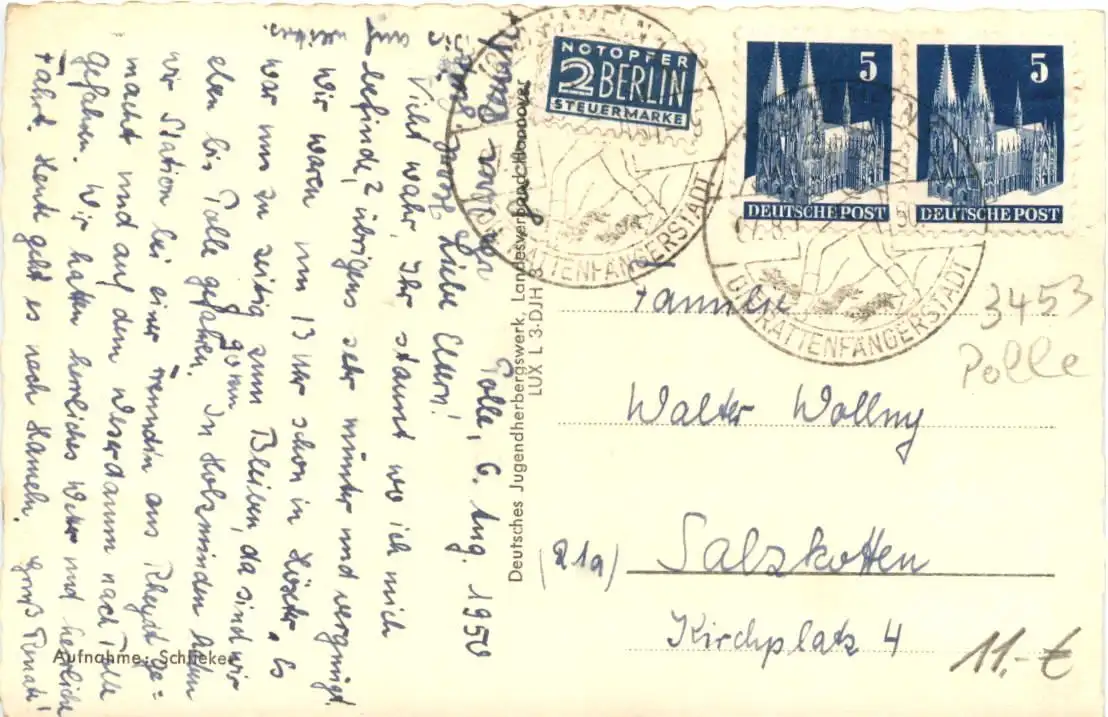 Polle, 6. Aug. 1950
Liebe Eltern!
Nicht wahr, Ihr staunt wo ich mich
befinde? übrigens sehr munter und vergnügt.
Wir waren um 13 Uhr schon in Höxter. Es
war uns zu zeitig zum Bleiben, da sind wir
eben bis Polle gefahren. In Holzminden hatten
wir Station bei einer Freundin aus Rheydt ge=
macht und auf dem Weserdamm nach Polle
gefahren. Wir hatten herrliches Wetter und herrliche
Fahrt. Heute geht es nach Hameln. Gruß Renate!
Aufnahme: Schlieker
Deutsches Jugendherbergswerk, Landesverband Hannover
LUX L 3-DJH 8
HAMELN
NOTOPFER
2 BERLIN
STEUERMARKE
RATTENFÄNGERSTADT
5
DEUTSCHE POST
5
DEUTSCHE POST
DIE RATTENFÄNGERSTADT
Familie
Walter Wollny
(21a) Salzkotten
Kirchplatz 4
3453
Polle
11.-€